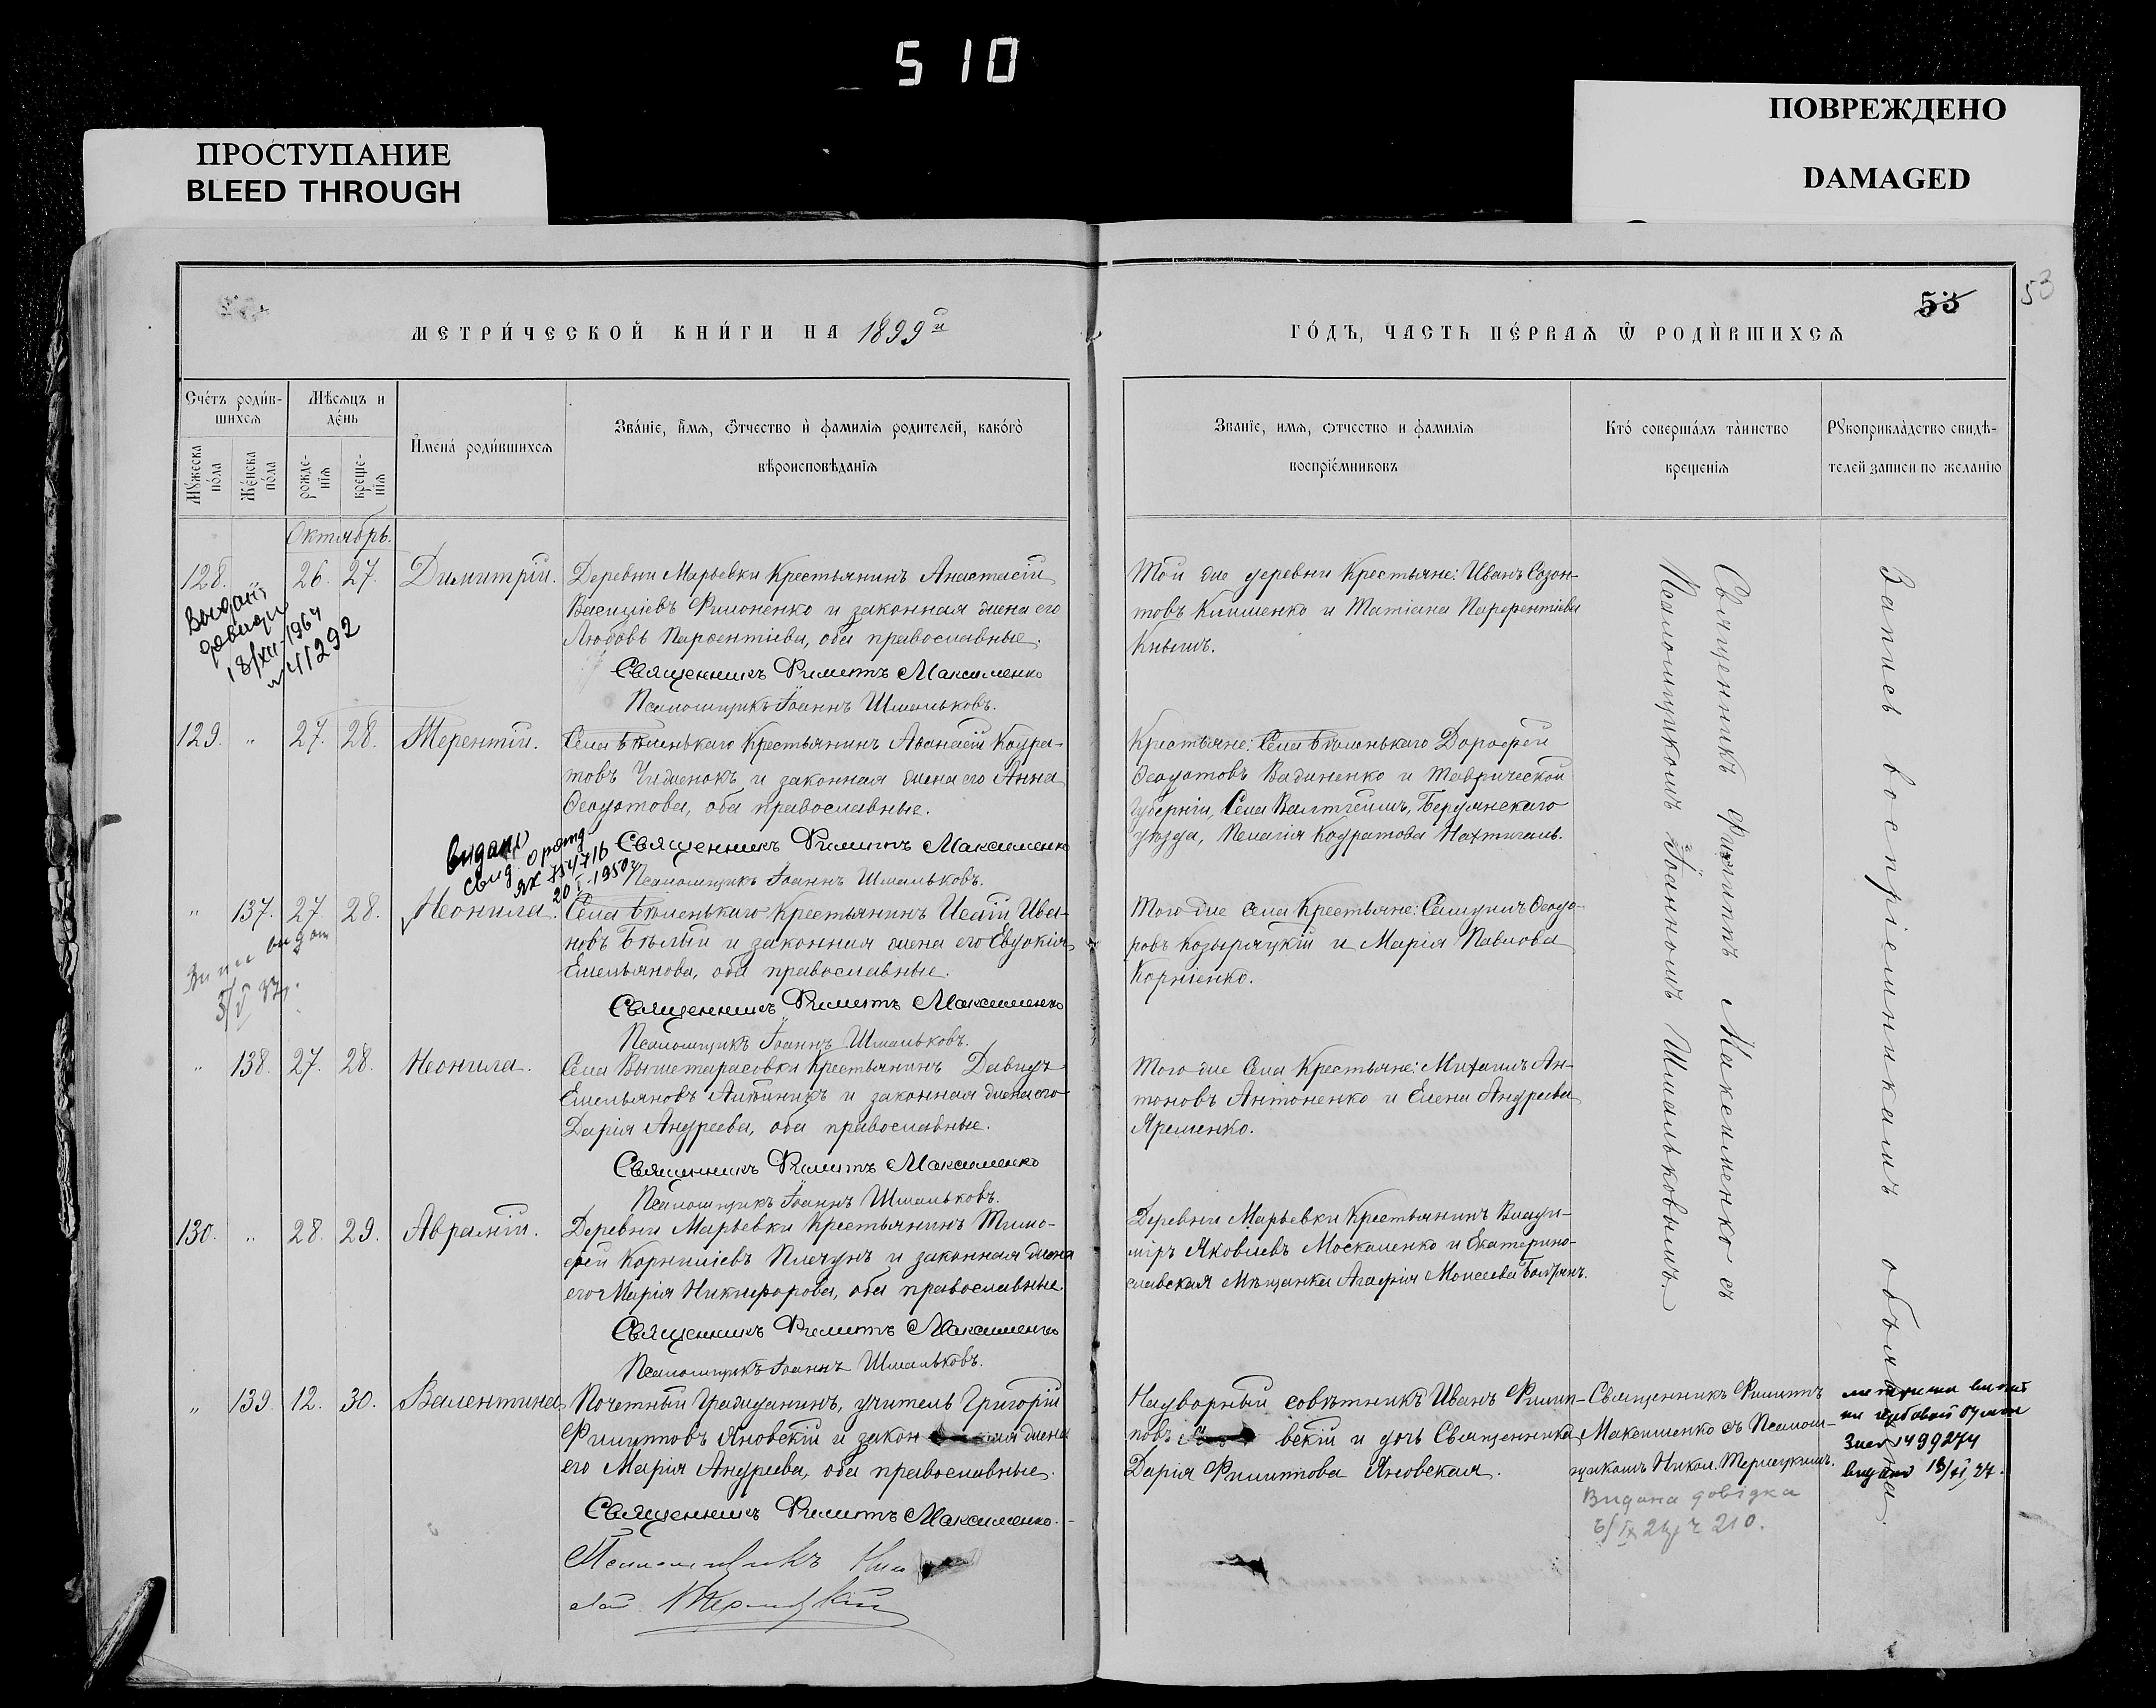 510
ПРОСТУПАНИЕ
BLEED THROUGH
ПОВРЕЖДЕНО
DAMAGED
53
53
МЕТРИ́ЧЕСКОЙ КНИ́ГИ НА 1899й
ГО́ДЪ, ЧАСТЬ ПЕ́РВАѦ Ѿ РОДИ́ВШИХСѦ
Счётъ роди́в-
шихсѧ
Мꙋ́жеска по́ла
Же́нска по́ла
Мѣ́сѧцъ и
де́нь
рожде-
нїѧ
креще-
нїѧ
Имена́ роди́вшихсѧ
Зва́нїе, и́мѧ, ѻ́тчество и́ фами́лїѧ роди́телей, како́гѡ
вѣроисповѣ́данїѧ
Званїе, имѧ, ѻтчество и фамилїѧ
воспрїе́мниковъ
Кто́ соверша́лъ та́инство
креще́нїѧ
Рꙋкоприкла́дство свидѣ́-
телей записи по жела́нїю
Октябрь.
128. 26. 27. Димитрій.
Деревни Марьевки Крестьянинъ Анастасій
Василіевъ Филоненко и законная жена его
Любовь Парѳентіева, оба православные.
Священникъ Филиппъ Максименко
Псаломщикъ Іоаннъ Шмальковъ.
Той же деревни Крестьяне: Иванъ Созон-
товъ Клименко и Татіана Парѳентіева
Кнышъ.
18/XII 1964
№ 41292
129. " 27. 28. Терентій.
Села Бѣленькаго Крестьянинъ Аѳанасій Кодра-
товъ Чиженокъ и законная жена его Анна
Ѳеодотова, оба православные.
Священникъ Филиппъ Максименко
Псаломщикъ Іоаннъ Шмальковъ.
Крестьяне: Села Бѣленькаго Дороѳей
Ѳеодотовъ Бадиненко и Таврической
губерніи, Села Валтгеймъ, Бердянскаго
уѣзда, Пелагія Кодратова Нахтигаль.
видано
свид.
20/I-1950
" 137. 27. 28. Неонила.
Села Бѣленькаго Крестьянинъ Исаій Ива-
новъ Бѣлый и законная жена его Евдокія
Емельянова, оба православные.
Священникъ Филиппъ Максименко
Псаломщикъ Іоаннъ Шмальковъ.
Того же села Крестьяне: Самуилъ Ѳеодо-
ровъ Козыряцкій и Марія Павлова
Корніенко.
" 138. 27. 28. Неонила.
Села Вышетарасовки Крестьянинъ Давидъ
Емельяновъ Литвникъ и законная жена его
Дарія Андреева, оба православные.
Священникъ Филиппъ Максименко
Псаломщикъ Іоаннъ Шмальковъ.
Того же Села Крестьяне: Михаилъ Ан-
тоновъ Антоненко и Елена Андреева
Яременко.
130. " 28. 29. Аврамій.
Деревни Марьевки Крестьянинъ Тимо-
ѳей Корниліевъ Плечунъ и законная жена
его Марія Никифорова, оба православные.
Священникъ Филиппъ Максименко
Псаломщикъ Іоаннъ Шмальковъ.
Деревни Марьевки Крестьянинъ Влади-
міръ Яковлевъ Москаленко и Екатерино-
славская Мѣщанка Агафія Моисеева
" 139. 12. 30. Валентина
Почетный Гражданинъ, учитель Григорій
Филипповъ Яновскій и закон ная жена
его Марія Андреева, оба православные.
Священникъ Филиппъ Максименко.
Псаломщикъ
Надворный совѣтникъ Иванъ Филип-
повъ вскій и дочь Священника
Дарія Филиппова Яновская.
Священникъ Филиппъ
Максименко съ Псалом-
щикомъ Никол. Терлецкимъ.
Видана довідка
Священникъ Филиппъ Максименко съ
Псаломщикомъ Іоанномъ Шмальковымъ.
Запись воспріемникамъ объявлена.